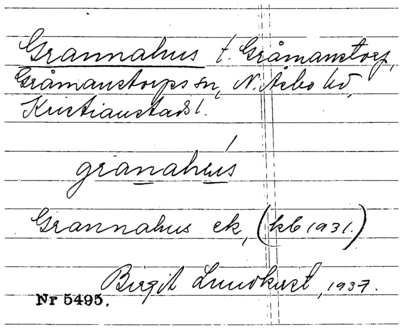 Grannahus t. Gråmanstorp,
Gråmanstorps sn, N. Åsbo hd,
Kristianstads l.
granahus
Grannahus ek, (kb 1931.)
Birgit Lundkvist, 1937.
Nr 5495.